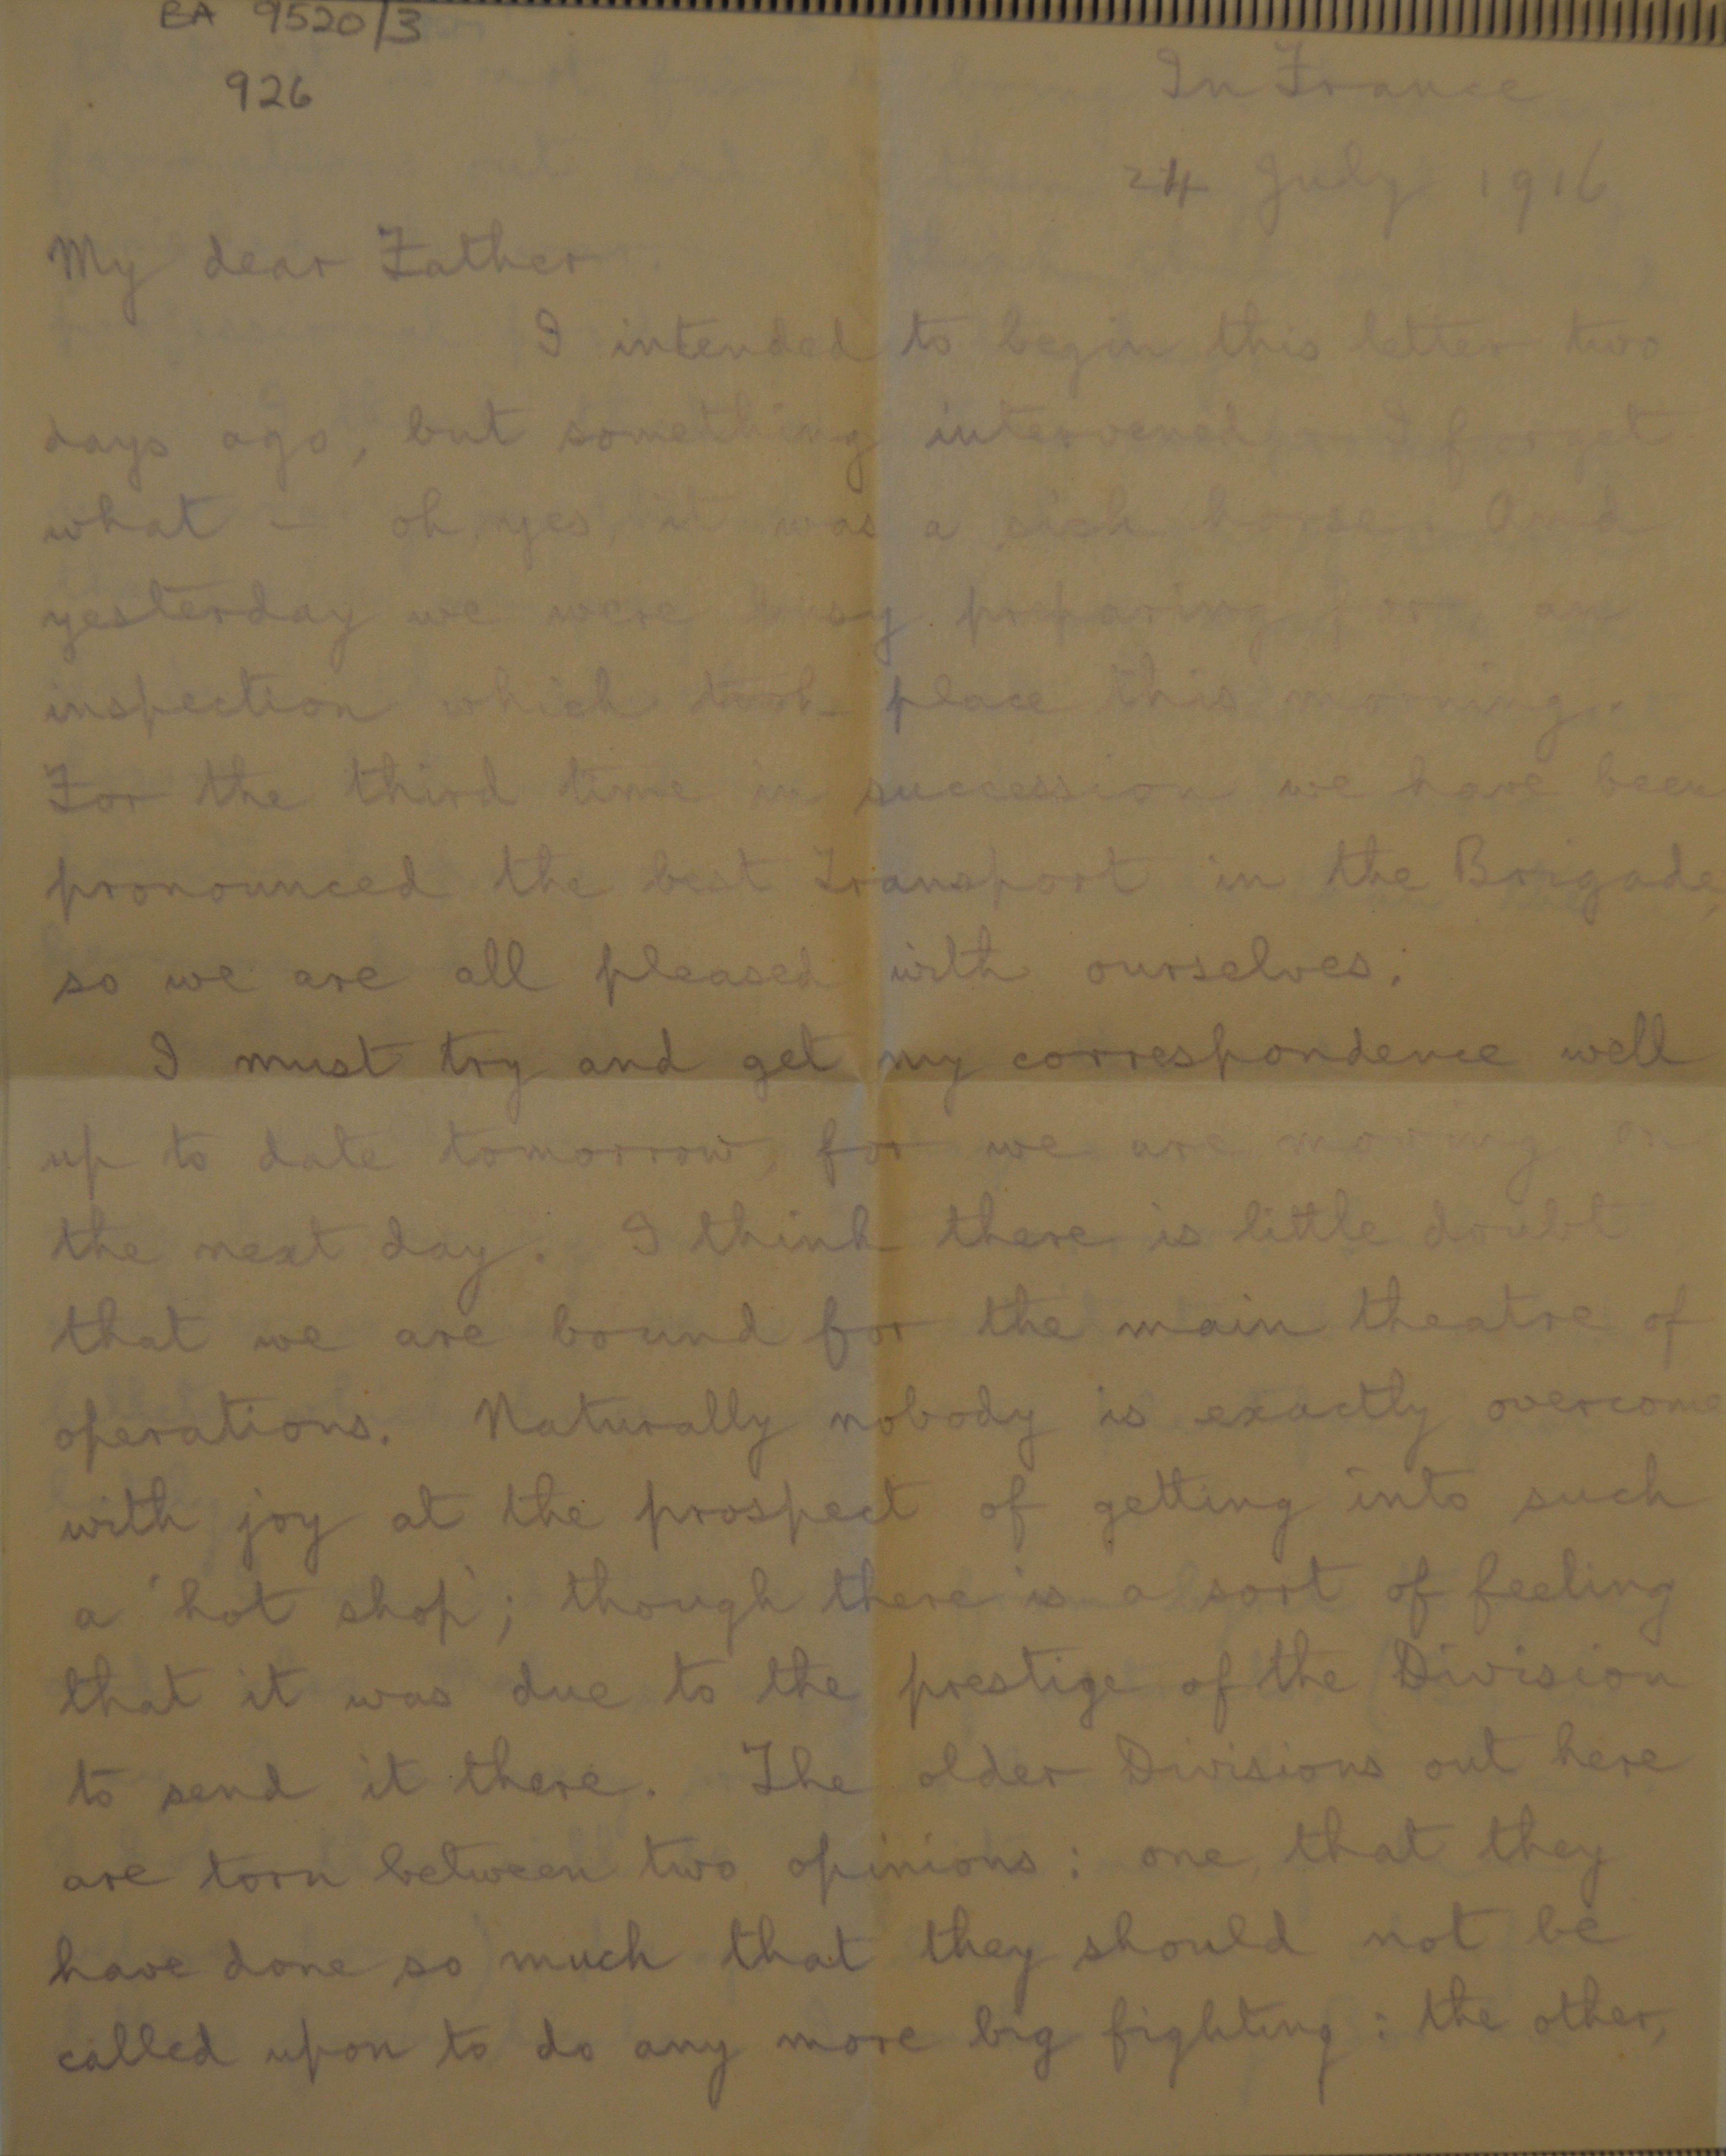 EA 9520/3
926
In France
24 July 1916
My dear Father
I intended to begin this letter two
days ago, but something intervened, I forget
what – oh yes, it was a sick horse. And
yesterday we were busy preparing for an
inspection which took place this morning.
For the third time in succession we have been
pronounced the best Transport in the Brigade,
so we are all pleased with ourselves.
I must try and get my correspondence well
up to date tomorrow, for we are moving on
the next day. I think there is little doubt
that we are bound for the main theatre of
operations. Naturally nobody is exactly overcome
with joy at the prospect of getting into such
a 'hot shop'; though there is a sort of feeling
that it was due to the prestige of the Division
to send it there. The older Divisions out here
are torn between two opinions: one, that they
have done so much that they should not be
called upon to do any more big fighting: the other,